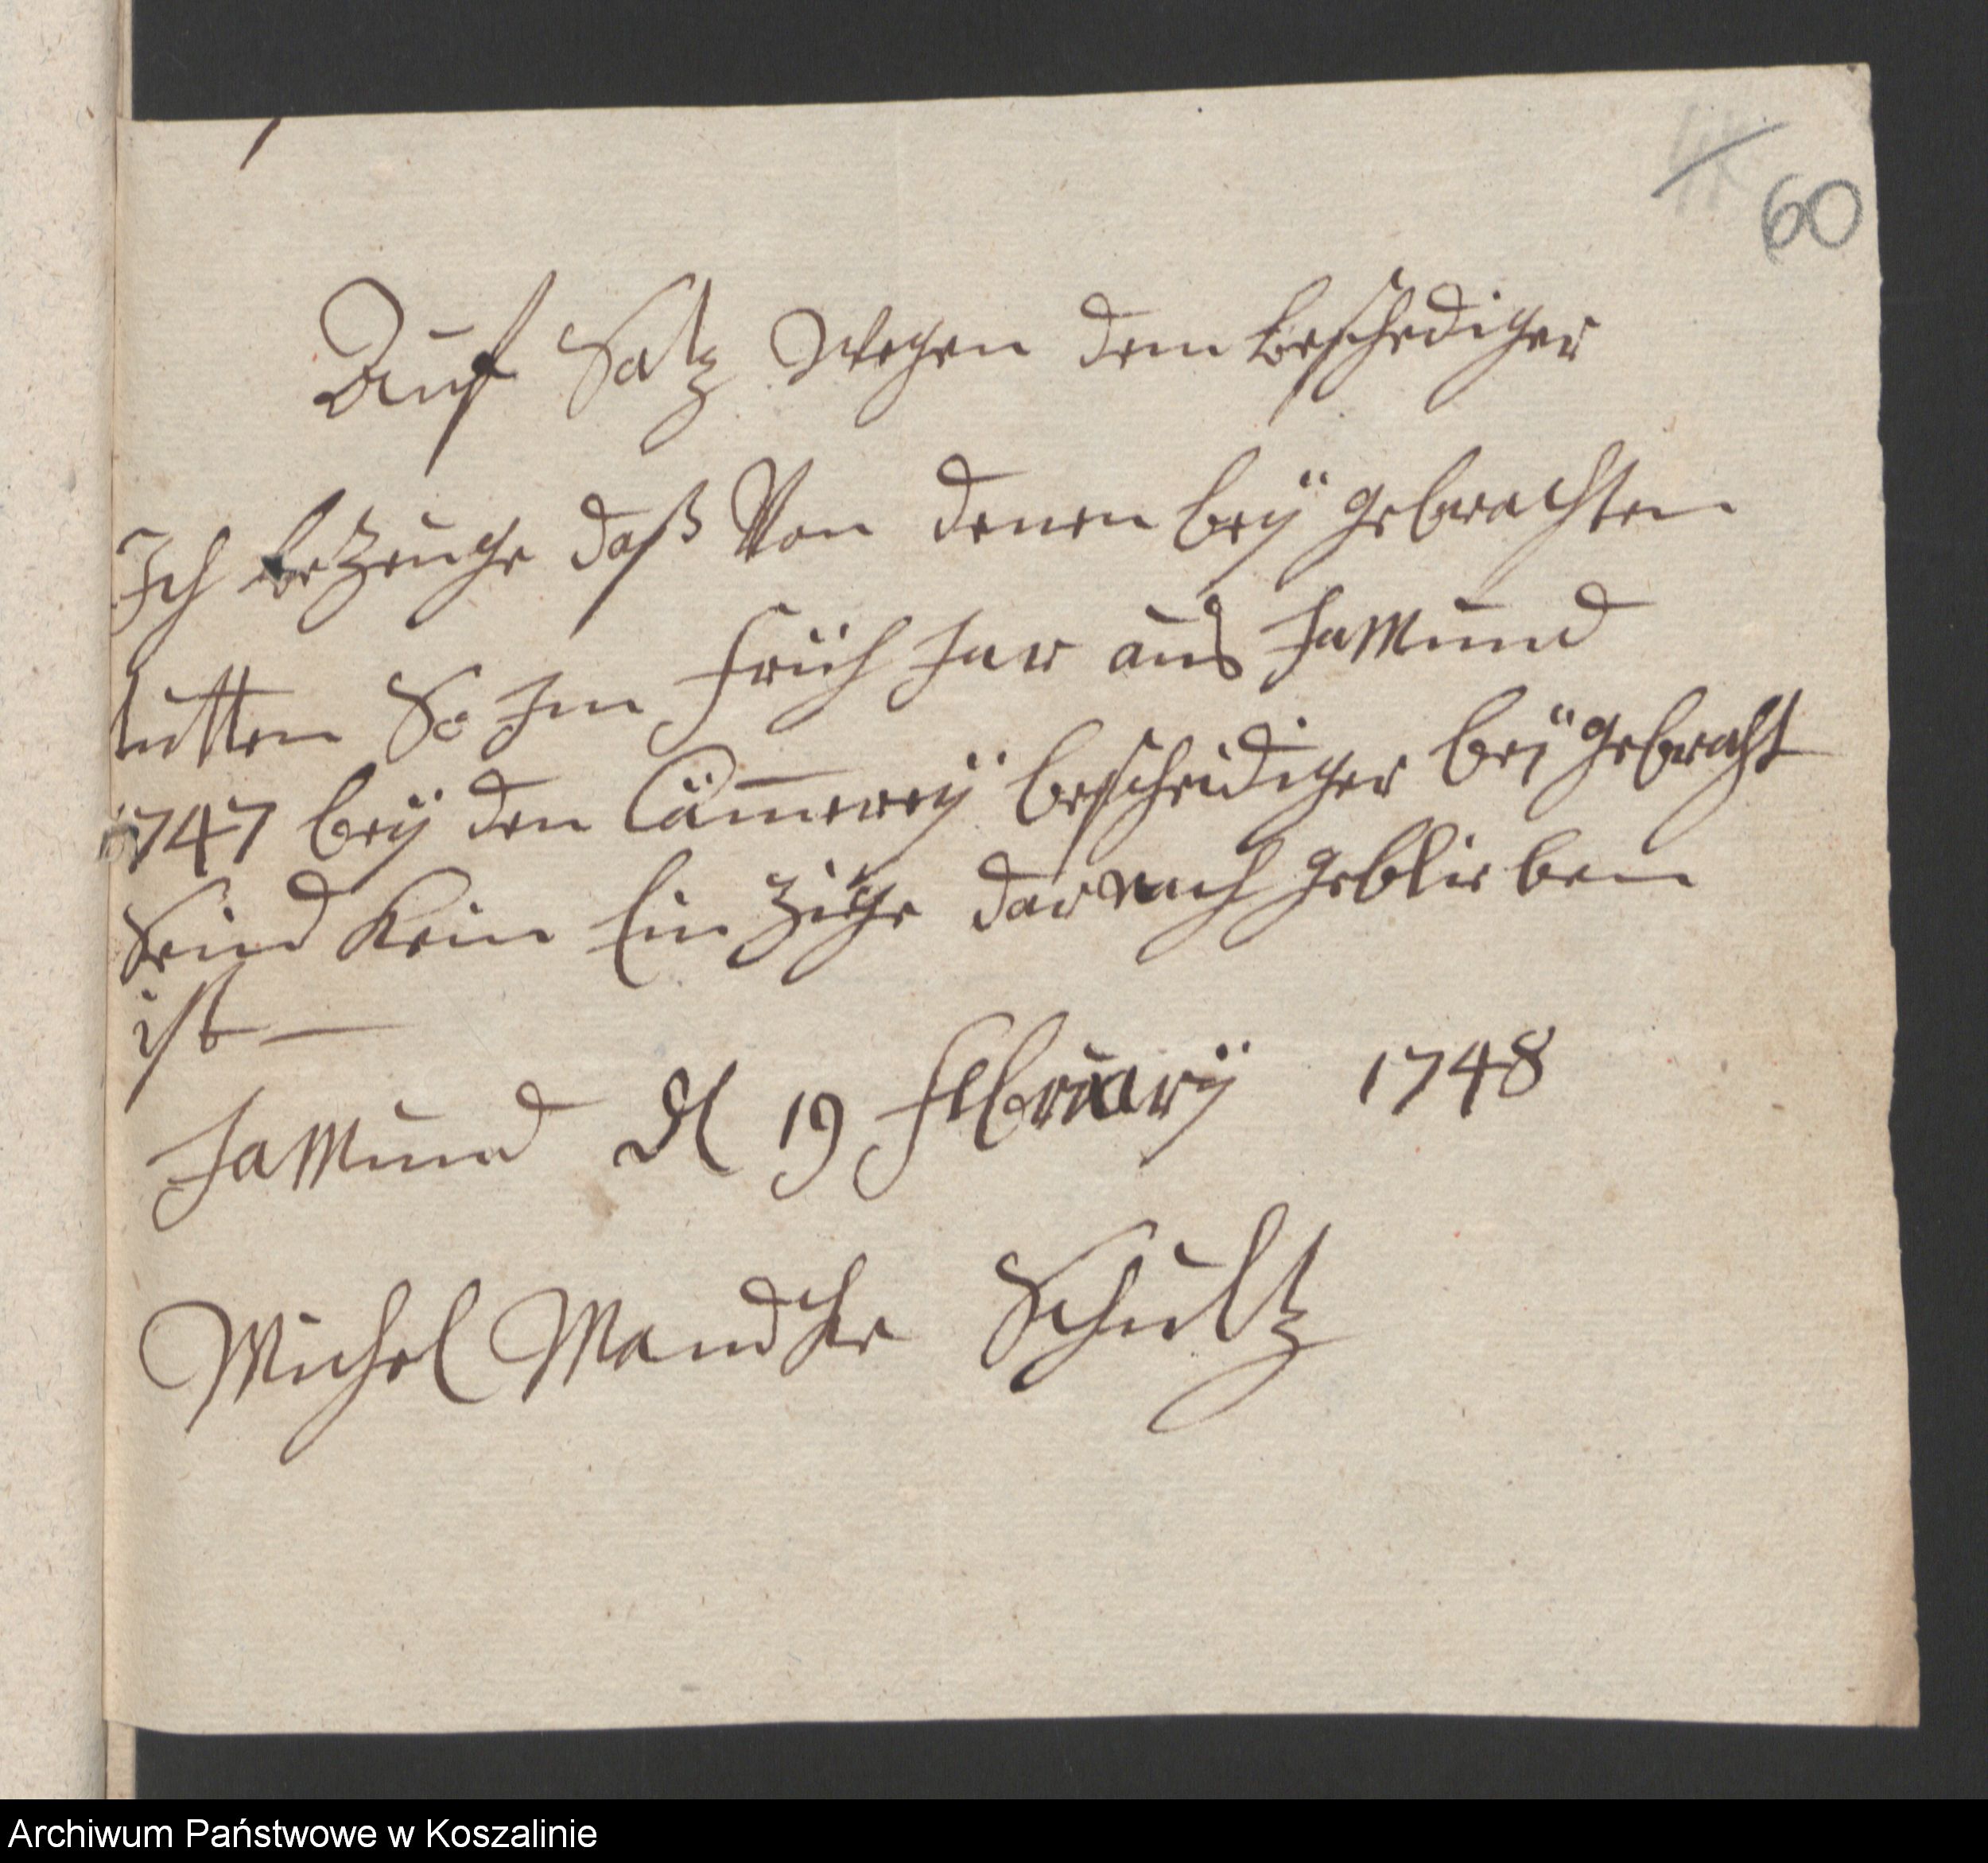 60
Auf Satz Wegen dem beschediger
Ich bezeuge daß Von denen beÿ gebrachten
Sc Im früh Jar aus JaMund
1747 beÿ den Cämererÿ bescheidiger beÿ gebracht
Seind Kein Ein Zige dar nach geblieben
ist —
JaMund dl 19 Februarÿ 1748
Michel Schultz
Archiwum Państwowe w Koszalinie